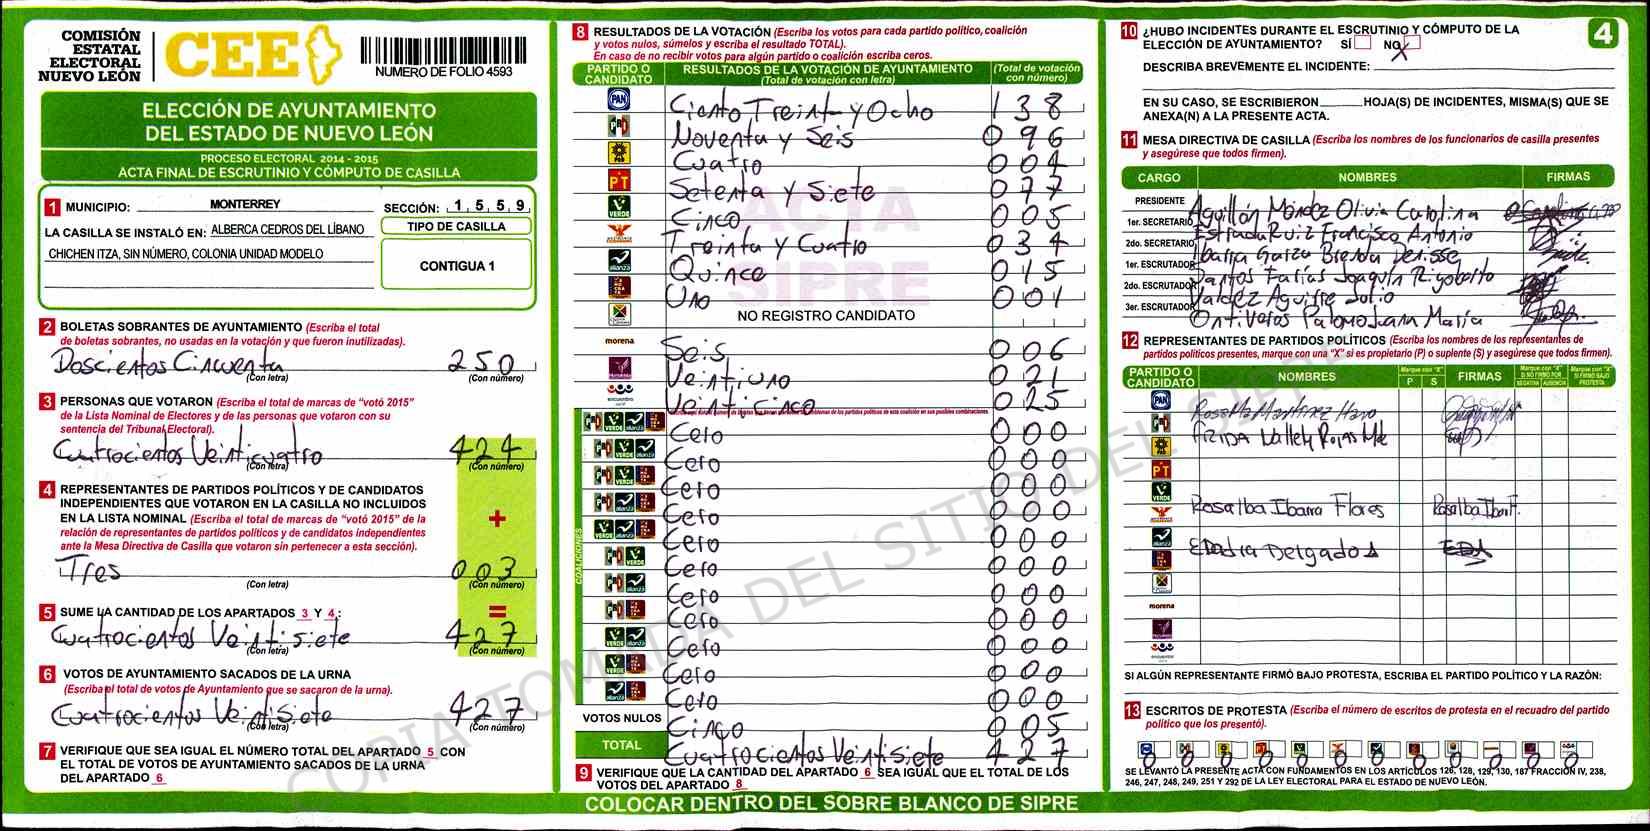 COMISIÓN
ESTATAL
ELECTORAL
NUEVO LEÓN
CEE
NUMERO DE FOLIO 4593
ELECCIÓN DE AYUNTAMIENTO
DEL ESTADO DE NUEVO LEÓN
PROCESO ELECTORAL 2014 - 2015
ACTA FINAL DE ESCRUTINIO Y CÓMPUTO DE CASILLA
1 MUNICIPIO: MONTERREY SECCIÓN: 1,5,5,9
LA CASILLA SE INSTALÓ EN: ALBERCA CEDROS DEL LÍBANO
CHICHEN ITZA, SIN NÚMERO, COLONIA UNIDAD MODELO
TIPO DE CASILLA
CONTIGUA 1
2 BOLETAS SOBRANTES DE AYUNTAMIENTO (Escriba el total
de boletas sobrantes, no usadas en la votación y que fueron inutilizadas).
Doscientos Cincuenta 250
(Con letra) (Con número)
3 PERSONAS QUE VOTARON (Escriba el total de marcas de "votó 2015"
de la Lista Nominal de Electores y de las personas que votaron con su
sentencia del Tribunal Electoral).
Cuatrocientos Veinticuatro 424
(Con letra) (Con número)
4 REPRESENTANTES DE PARTIDOS POLÍTICOS Y DE CANDIDATOS
INDEPENDIENTES QUE VOTARON EN LA CASILLA NO INCLUIDOS
EN LA LISTA NOMINAL (Escriba el total de marcas de "votó 2015" de la
relación de representantes de partidos políticos y de candidatos independientes
ante la Mesa Directiva de Casilla que votaron sin pertenecer a esta sección).
+
Tres 003
(Con letra) (Con número)
=
5 SUME LA CANTIDAD DE LOS APARTADOS 3 Y 4:
Cuatrocientos Veintisiete 427
(Con letra) (Con número)
6 VOTOS DE AYUNTAMIENTO SACADOS DE LA URNA
(Escriba el total de votos de Ayuntamiento que se sacaron de la urna).
Cuatrocientos Veintisiete 427
(Con letra) (Con número)
7 VERIFIQUE QUE SEA IGUAL EL NÚMERO TOTAL DEL APARTADO 5 CON
EL TOTAL DE VOTOS DE AYUNTAMIENTO SACADOS DE LA URNA
DEL APARTADO 6
8 RESULTADOS DE LA VOTACIÓN (Escriba los votos para cada partido político, coalición
y votos nulos, súmelos y escriba el resultado TOTAL).
En caso de no recibir votos para algún partido o coalición escriba ceros.
PARTIDO O CANDIDATO RESULTADOS DE LA VOTACIÓN DE AYUNTAMIENTO (Total de votación con letra) (Total de votación con número)
PAN Ciento Treinta y Ocho 138
PRD Noventa y Seis 096
Cuatro 004
PT Setenta y Siete 077
VERDE Cinco 005
Treinta y Cuatro 034
alianza Quince 015
Uno 001
NO REGISTRO CANDIDATO
morena Seis 006
Veintiuno 021
encuentro Veinticinco 025
COALICIONES
Cero 000
Cero 000
Cero 000
Cero 000
Cero 000
Cero 000
Cero 000
Cero 000
Cero 000
Cero 000
Cero 000
VOTOS NULOS Cinco 005
TOTAL Cuatrocientos Veintisiete 427
9 VERIFIQUE QUE LA CANTIDAD DEL APARTADO 6 SEA IGUAL QUE EL TOTAL DE LOS
VOTOS DEL APARTADO 8
COLOCAR DENTRO DEL SOBRE BLANCO DE SIPRE
ACTA
SIPRE
COPIA TOMADA DEL SITIO DEL SIPRE
4
10 ¿HUBO INCIDENTES DURANTE EL ESCRUTINIO Y CÓMPUTO DE LA
ELECCIÓN DE AYUNTAMIENTO? SÍ NO X
DESCRIBA BREVEMENTE EL INCIDENTE:
EN SU CASO, SE ESCRIBIERON HOJA(S) DE INCIDENTES, MISMA(S) QUE SE
ANEXA(N) A LA PRESENTE ACTA.
11 MESA DIRECTIVA DE CASILLA (Escriba los nombres de los funcionarios de casilla presentes
y asegúrese que todos firmen).
CARGO NOMBRES FIRMAS
PRESIDENTE Aguillón Méndez Olivia Carolina
1er. SECRETARIO Estrada Ruiz Francisco Antonio
2do. SECRETARIO Ibarra Garza Brenda Denisse
1er. ESCRUTADOR Santos Farías Joaquín Rigoberto
2do. ESCRUTADOR Valdez Aguirre Julio
3er. ESCRUTADOR Ontiveros Palomo Juana María
12 REPRESENTANTES DE PARTIDOS POLÍTICOS (Escriba los nombres de los representantes de
partidos políticos presentes, marque con una "X" si es propietario (P) o suplente (S) y asegúrese que todos firmen).
PARTIDO O CANDIDATO NOMBRES Marque con "X" P S FIRMAS Marque con "X" SI NO FIRMÓ POR NEGATIVA AUSENCIA Marque con "X" SI FIRMÓ BAJO PROTESTA
PAN Rosa Ma Martinez Haro
Rosalba Ibarra Flores Rosalba Ibarra F.
Delgado
morena
encuentro
SI ALGÚN REPRESENTANTE FIRMÓ BAJO PROTESTA, ESCRIBA EL PARTIDO POLÍTICO Y LA RAZÓN:
13 ESCRITOS DE PROTESTA (Escriba el número de escritos de protesta en el recuadro del partido
político que los presentó).
0 0 0 0 0 0 0 0 0 0 0 0
SE LEVANTÓ LA PRESENTE ACTA CON FUNDAMENTOS EN LOS ARTÍCULOS 126, 128, 129, 130, 187 FRACCIÓN IV, 238,
246, 247, 248, 249, 251 Y 292 DE LA LEY ELECTORAL PARA EL ESTADO DE NUEVO LEÓN.